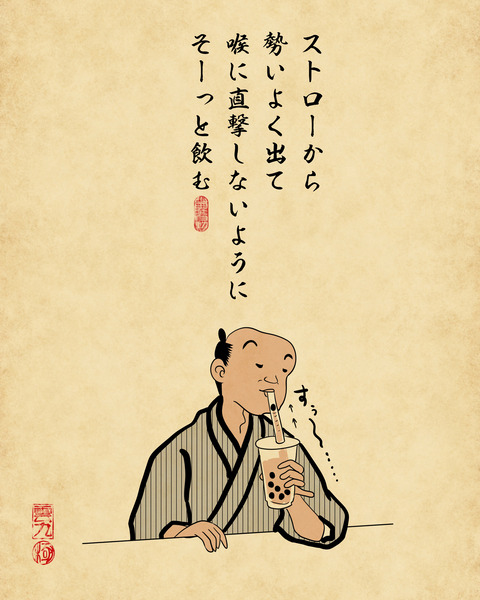 ストローから
勢いよく出て
喉に直撃しないように
そーっと飲む
すぅ〜……